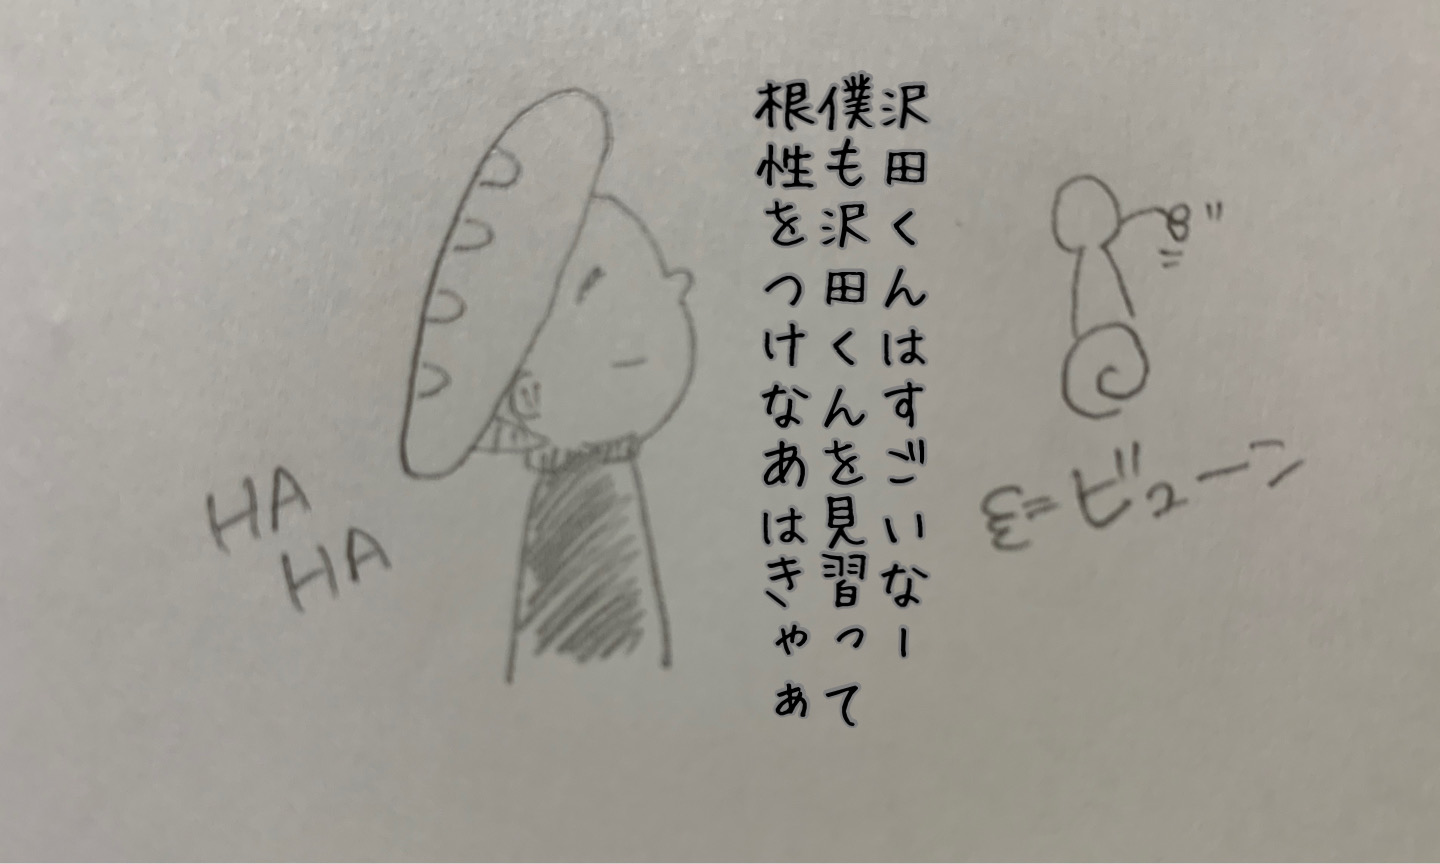 沢田くんはすごいなー
僕も沢田くんを見習って
根性をつけなあはきゃぁ
ε=ビューン
HA
HA